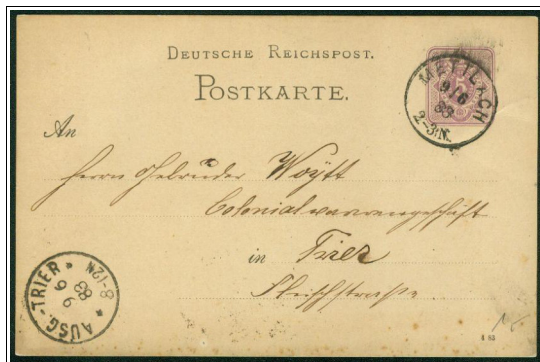 DEUTSCHE REICHSPOST.
POSTKARTE.
METTLACH
9/6
88
2-3N.
5
An
Herrn Gebrüder Woÿtt
Colonialwarengeschäft
in Trier
Fleischstraße.
AUSG.-TRIER
9
6
88
8-12N